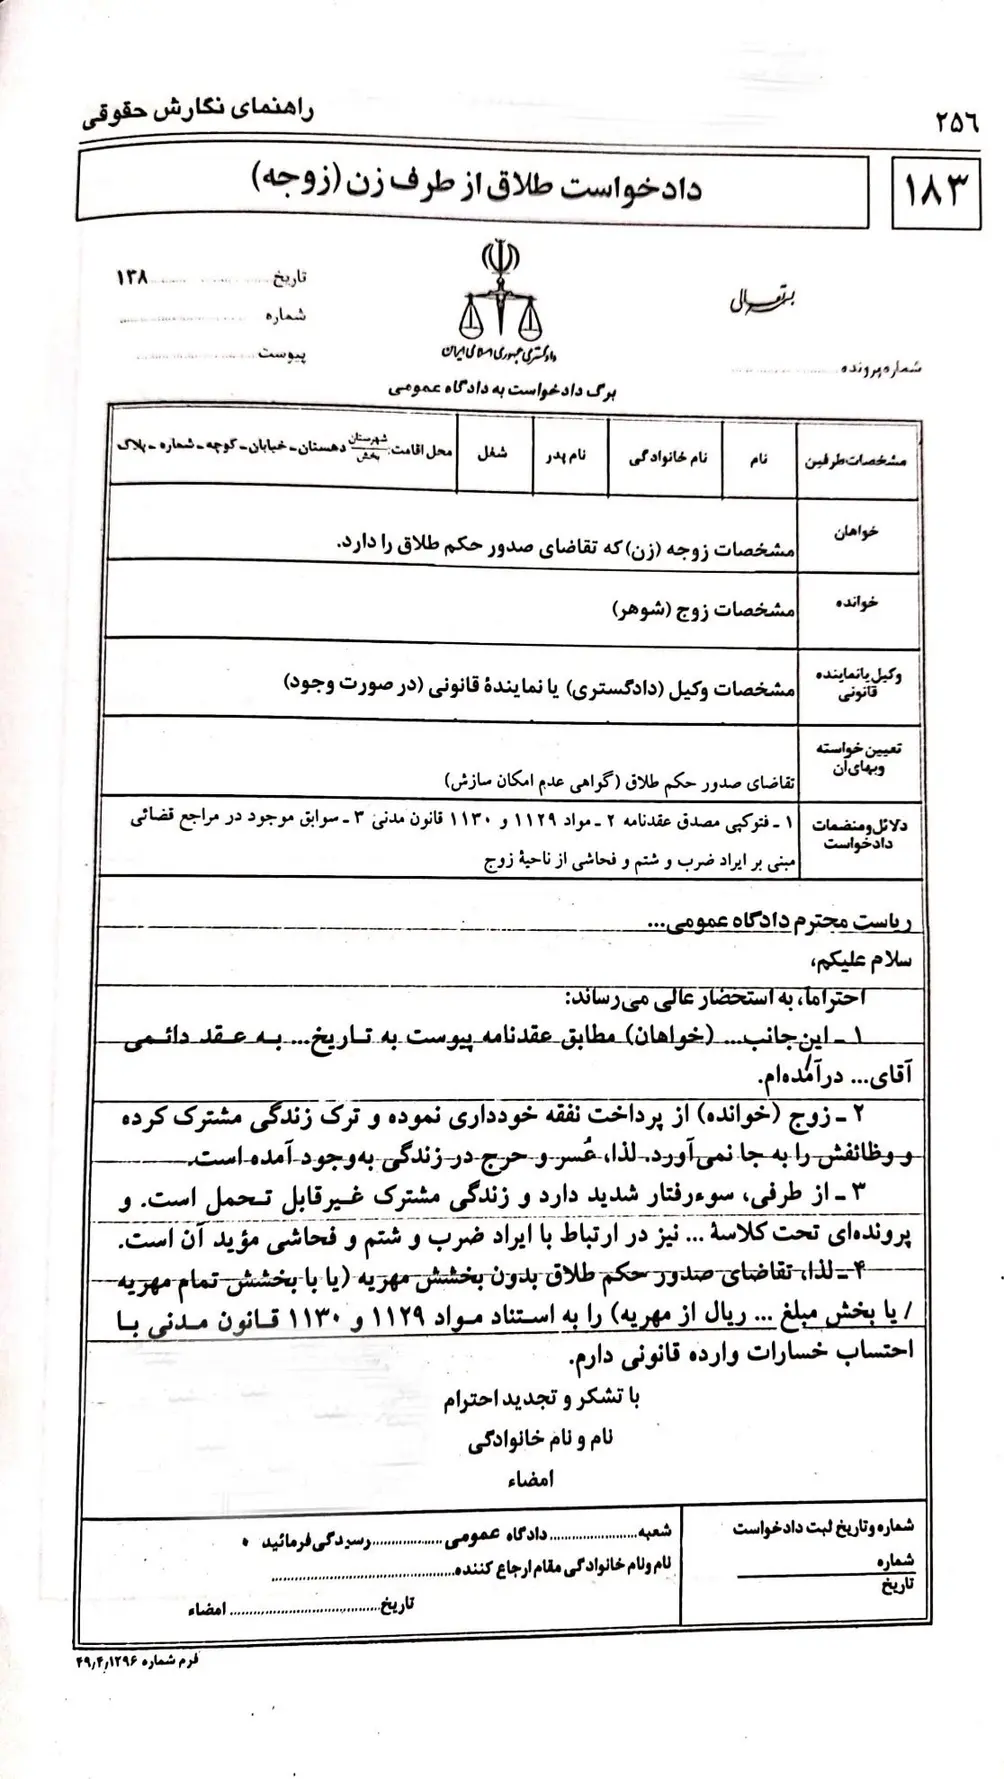 ۲۵۶
راهنمای نگارش حقوقی
۱۸۳
دادخواست طلاق از طرف زن (زوجه)
بسمه تعالی
دادگستری جمهوری اسلامی ایران
تاریخ .................... ۱۳۸
شماره ....................
پیوست ....................
شماره پرونده ....................
برگ دادخواست به دادگاه عمومی
مشخصات طرفین | نام | نام خانوادگی | نام پدر | شغل | محل اقامت: شهرستان بخش دهستان - خیابان - کوچه - شماره - پلاک
خواهان | مشخصات زوجه (زن) که تقاضای صدور حکم طلاق را دارد.
خوانده | مشخصات زوج (شوهر)
وکیل یا نماینده قانونی | مشخصات وکیل (دادگستری) یا نمایندۀ قانونی (در صورت وجود)
تعیین خواسته وبهای آن | تقاضای صدور حکم طلاق (گواهی عدم امکان سازش)
دلائل ومنضمات دادخواست | ۱ ـ فتوکپی مصدق عقدنامه ۲ ـ مواد ۱۱۲۹ و ۱۱۳۰ قانون مدنی ۳ ـ سوابق موجود در مراجع قضائی
مبنی بر ایراد ضرب و شتم و فحاشی از ناحیۀ زوج
ریاست محترم دادگاه عمومی...
سلام علیکم،
احتراماً، به استحضار عالی می‌رساند:
۱ ـ این‌جانب... (خواهان) مطابق عقدنامه پیوست به تاریخ... به عقد دائمی
آقای... درآمده‌ام.
۲ ـ زوج (خوانده) از پرداخت نفقه خودداری نموده و ترک زندگی مشترک کرده
و وظائفش را به جا نمی‌آورد. لذا، عُسر و حرج در زندگی به‌وجود آمده است.
۳ ـ از طرفی، سوءرفتار شدید دارد و زندگی مشترک غیرقابل تحمل است. و
پرونده‌ای تحت کلاسۀ ... نیز در ارتباط با ایراد ضرب و شتم و فحاشی مؤید آن است.
۴ ـ لذا، تقاضای صدور حکم طلاق بدون بخشش مهریه (یا با بخشش تمام مهریه
/ یا بخش مبلغ ... ریال از مهریه) را به استناد مواد ۱۱۲۹ و ۱۱۳۰ قانون مدنی با
احتساب خسارات وارده قانونی دارم.
با تشکر و تجدید احترام
نام و نام خانوادگی
امضاء
شماره وتاریخ ثبت دادخواست
شماره
تاریخ
شعبه .................... دادگاه عمومی .................... رسیدگی فرمائید .
نام ونام خانوادگی مقام ارجاع کننده ........................................
تاریخ .................................... امضاء
فرم شماره ۴۹٫۴٫۱۲۹۶